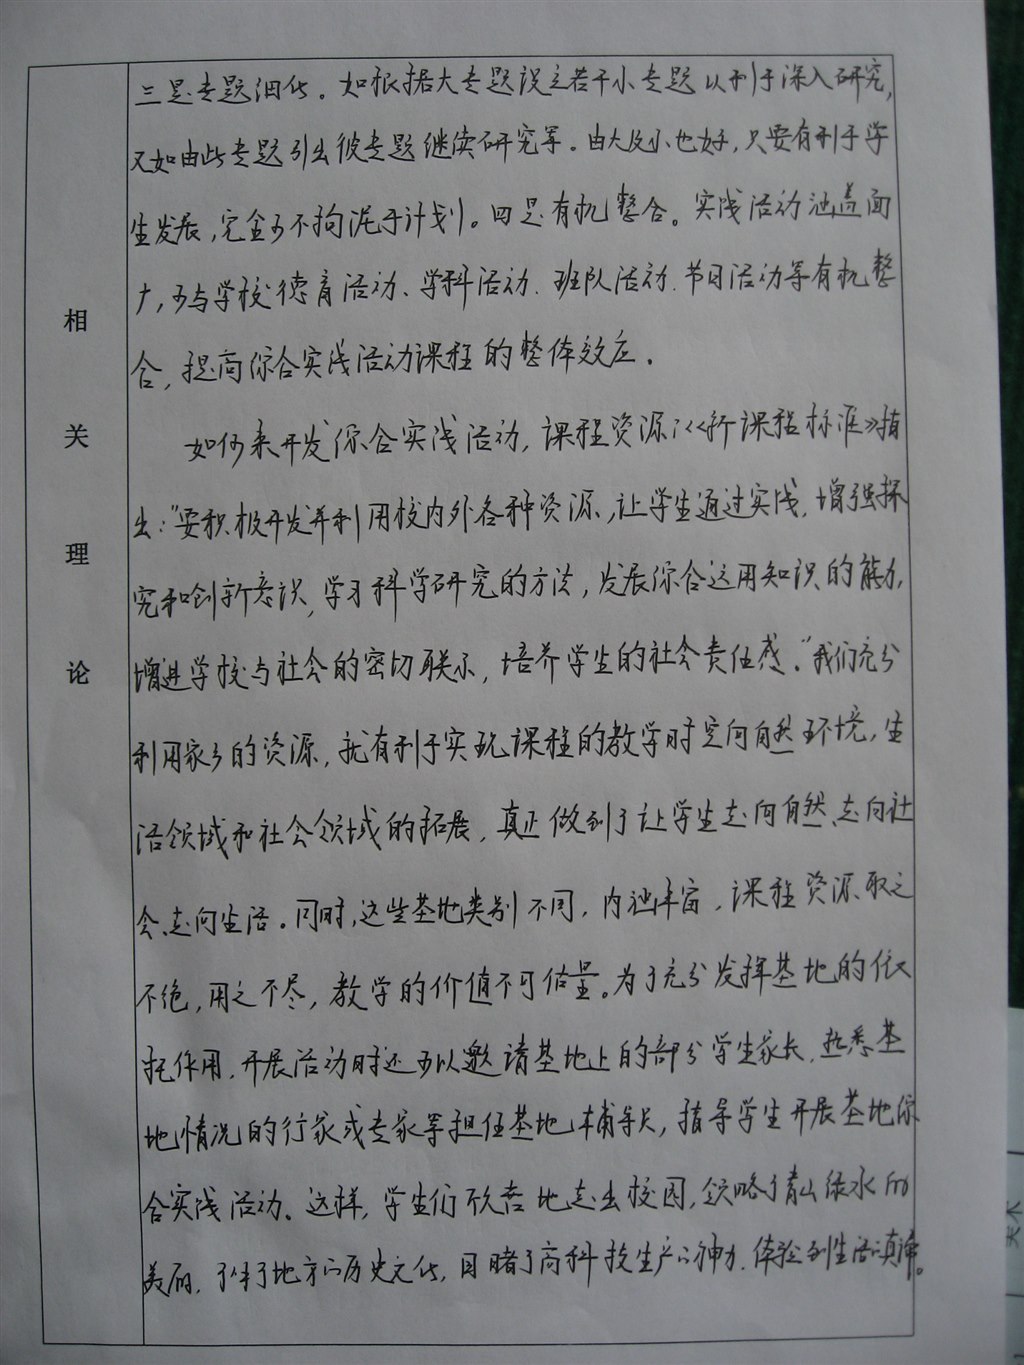 相
关
理
论
三是专题细化。如根据大专题设立若干小专题以利于深入研究,
又如由此专题引出彼专题继续研究等。由大及小也好,只要有利于学
生发展,完全可不拘泥于计划。四是有机整合。实践活动涵盖面
广,可与学校德育活动、学科活动、班队活动、节日活动等有机整
合,提高综合实践活动课程的整体效应。
如何来开发综合实践活动,课程资源?《新课程标准》指
出:"要积极开发并利用校内外各种资源,让学生通过实践,增强探
究和创新意识,学习科学研究的方法,发展综合运用知识的能力,
增进学校与社会的密切联系,培养学生的社会责任感。"我们充分
利用家乡的资源,就有利于实现课程的教学时空向自然环境,生
活领域和社会领域的拓展,真正做到了让学生走向自然、走向社
会、走向生活。同时,这些基地类别不同,内涵丰富,课程资源取之
不绝,用之不尽,教学的价值不可估量。为了充分发挥基地的依
托作用,开展活动时还可以邀请基地上的部分学生家长、熟悉基
地情况的行家或专家等担任基地辅导员,指导学生开展基地综
合实践活动。这样,学生们欣喜地走出校园,领略了青山绿水的
美丽,了解了地方的历史文化,目睹了高科技生产的神力,体验到生活的真谛。
美术